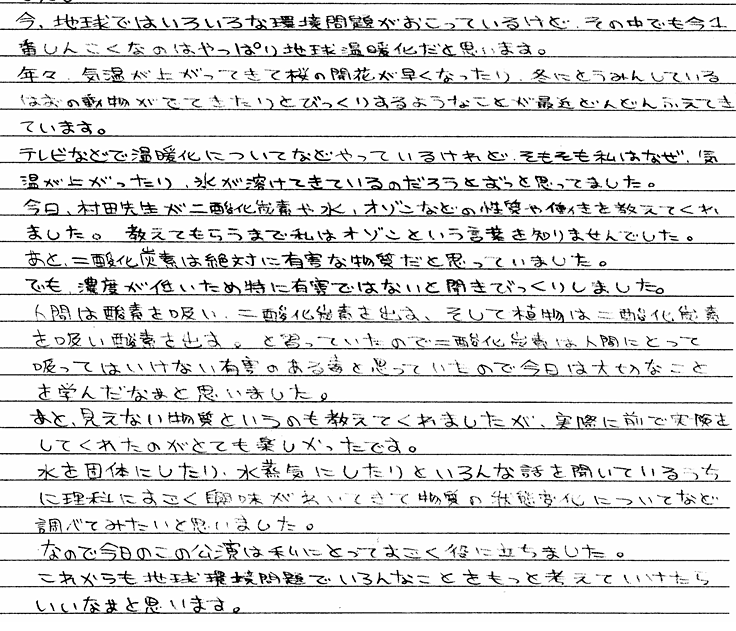 今、地球ではいろいろな環境問題がおこっているけど、その中でも今1
番しんこくなのはやっぱり地球温暖化だと思います。
年々、気温が上がってきて桜の開花が早くなったり、冬にとうみんしている
はずの動物がでてきたりとびっくりするようなことが最近どんどんふえてき
ています。
テレビなどで温暖化についてなどやっているけれど、そもそも私はなぜ、気
温が上がったり、氷が溶けてきているのだろうとずっと思ってました。
今日、村田先生が二酸化炭素や水、オゾンなどの性質や働きを教えてくれ
ました。 教えてもらうまで私はオゾンという言葉を知りませんでした。
あと、二酸化炭素は絶対に有害な物質だと思っていました。
でも、濃度が低いため特に有害ではないと聞きびっくりしました。
人間は酸素を吸い、二酸化炭素を出す、そして植物は二酸化炭素
を吸い酸素を出す。と習っていたので二酸化炭素は人間にとって
吸ってはいけない有害のある毒と思っていたので今日は大切なこと
を学んだなぁと思いました。
あと、見えない物質というのも教えてくれましたが、実際に前で実験を
してくれたのがとても楽しかったです。
水を固体にしたり、水蒸気にしたりといろんな話を聞いているうち
に理科にすごく興味がわいてきて物質の状態変化についてなど
調べてみたいと思いました。
なので今日のこの公演は私にとってすごく役に立ちました。
これからも地球環境問題でいろんなことをもっと考えていけたら
いいなぁと思います。